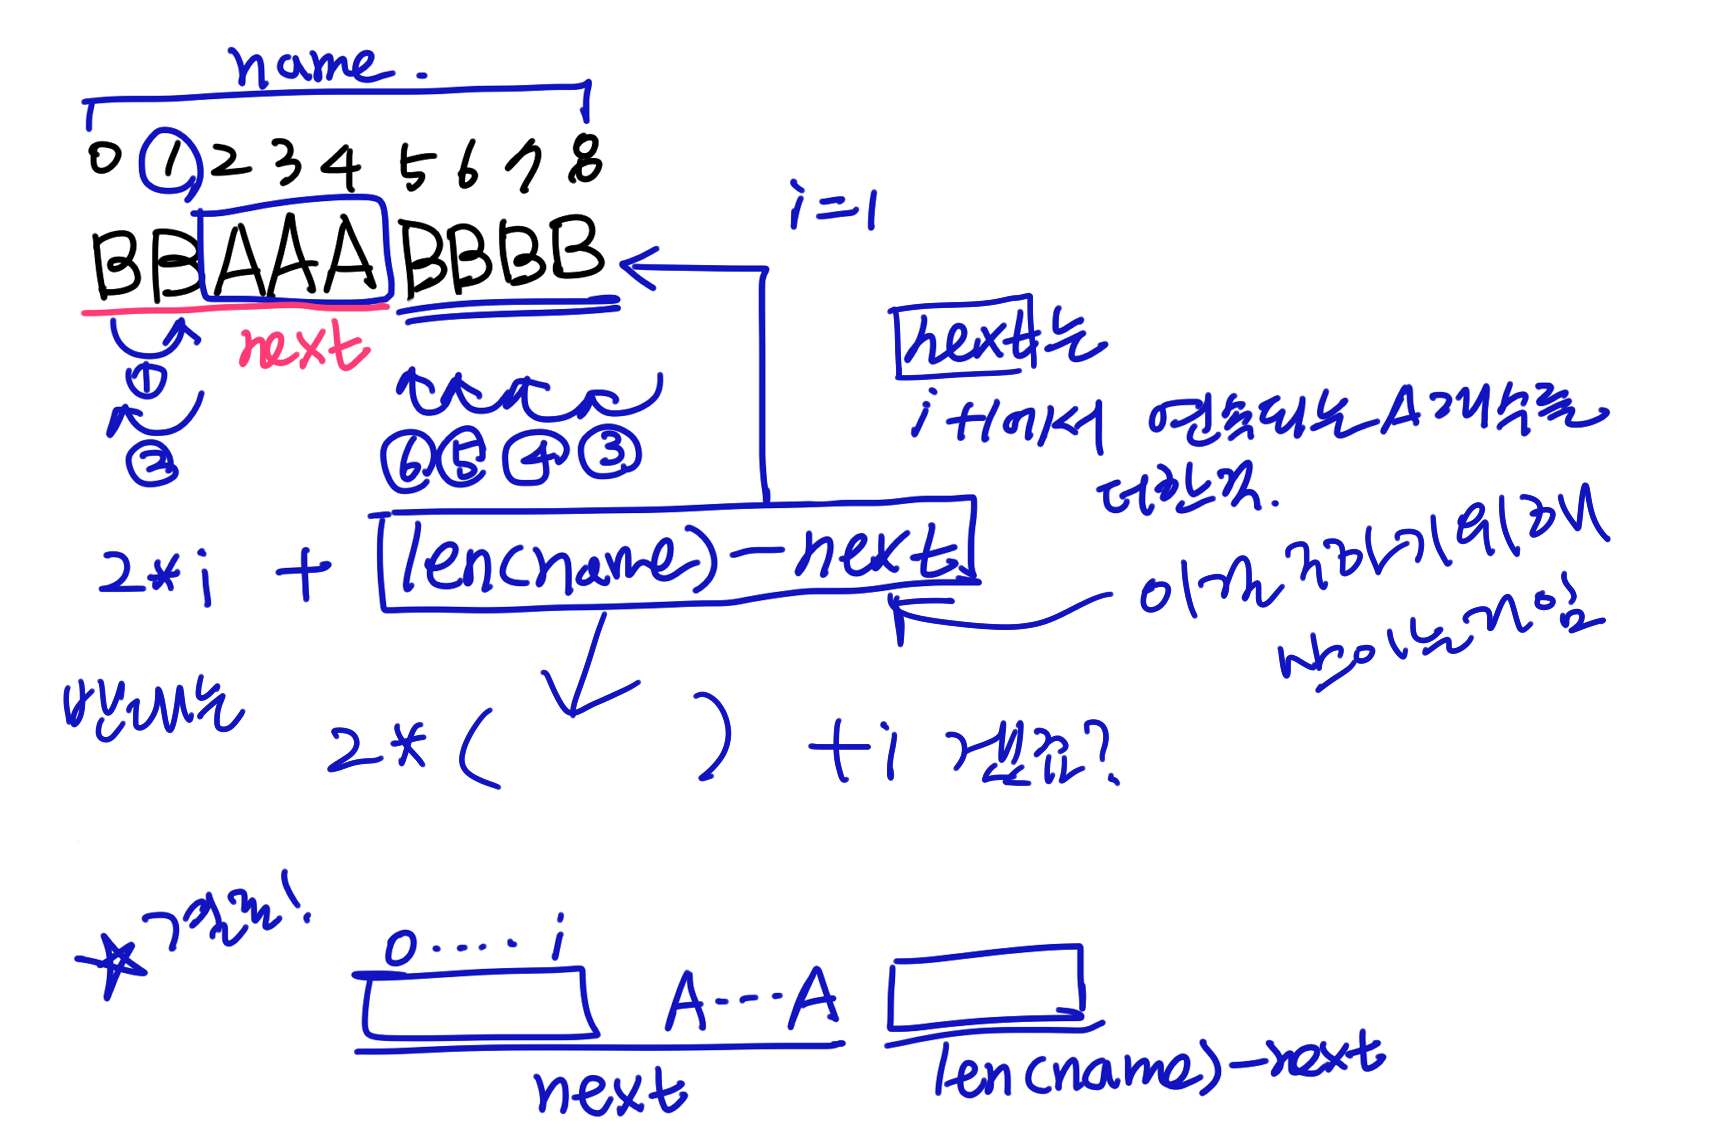 name.
0 1 2 3 4 5 6 7 8
BBAAABBBB
i=1
next
① ②
⑥ ⑤ ④ ③
next는
i+1에서 연속되는 A 개수를
더한 것.
2*i + len(name)-next
이걸 구하기 위해
쌓이는거임
반대는
2*( ) +i 겠죠?
☆ 결론!
0 .... i
A---A
next
len(name)-next